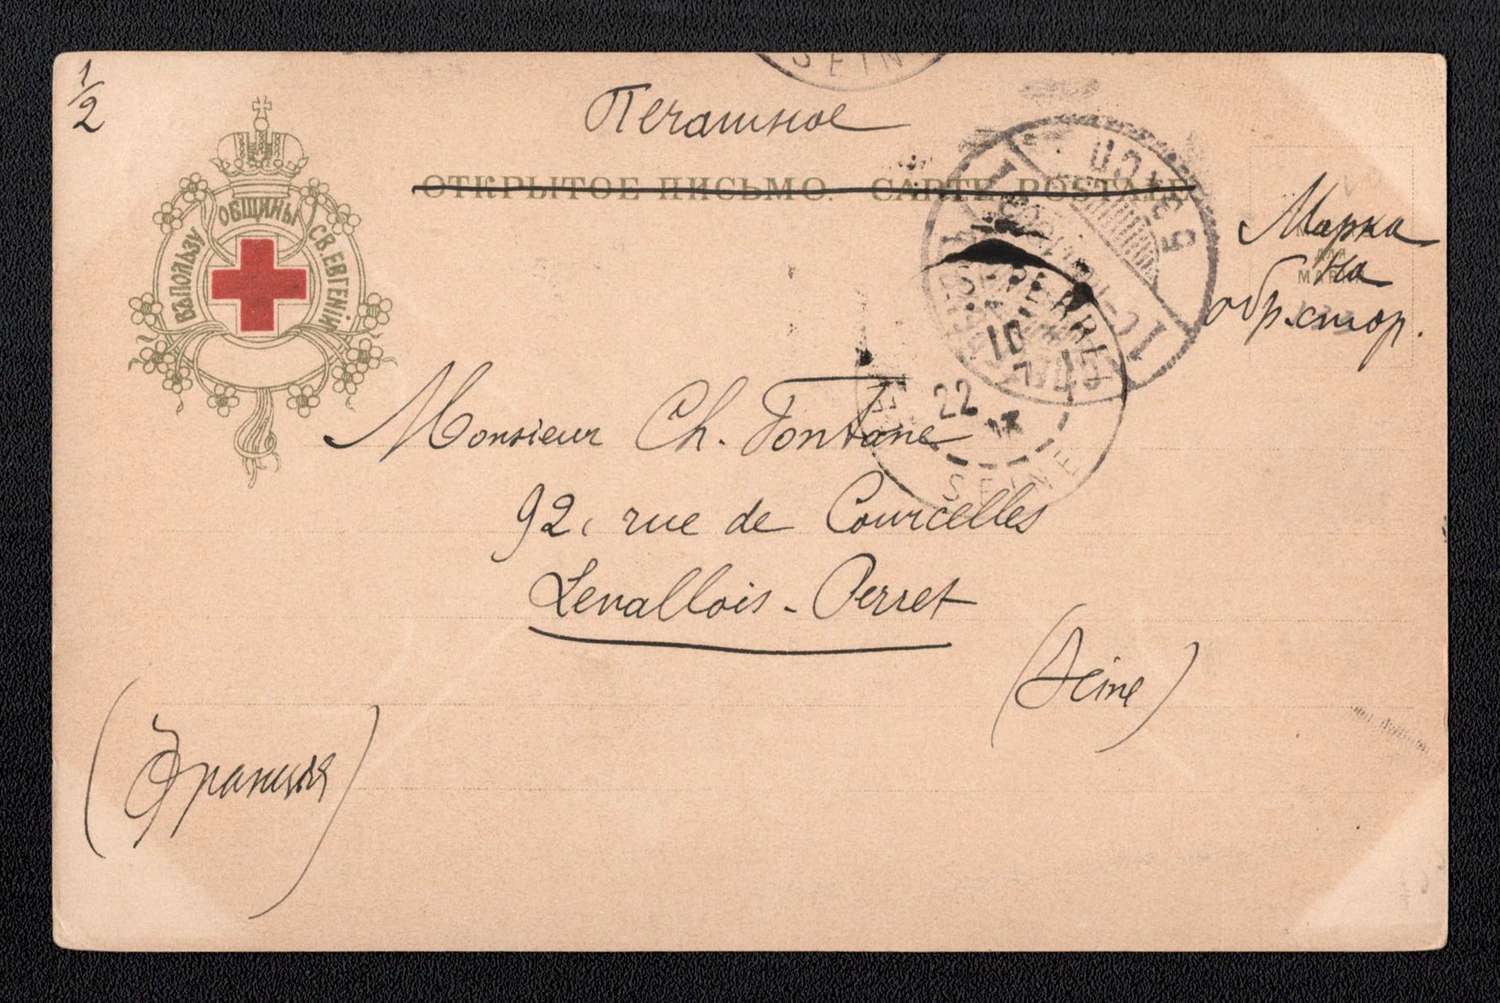 1/2
SEINE
Печатное
ОТКРЫТОЕ ПИСЬМО. CARTE POSTALE
ВЪ ПОЛЬЗУ ОБЩИНЫ СВ. ЕВГЕНІИ
Марка
на
обр. стор.
PERRET
22
SEINE
Monsieur Ch. Fontane
92, rue de Courcelles
Levallois-Perret
(Seine)
(Франція)